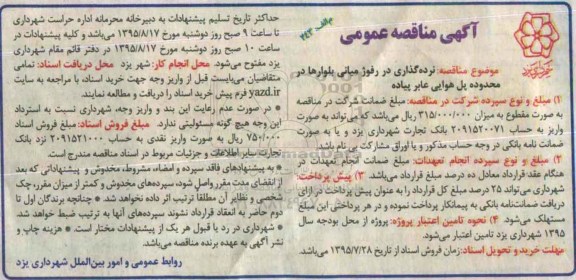 آگهی مناقصه عمومی
م‌الف: ۲۴۳
موضوع مناقصه: نرده‌گذاری در رفوژ میانی بلوارها در
محدوده پل هوایی عابر پیاده
۱) مبلغ و نوع سپرده شرکت در مناقصه: مبلغ ضمانت شرکت در مناقصه
به صورت مقطوع به میزان ۳۱۵/۰۰۰/۰۰۰ ریال می‌باشد که می‌تواند به صورت
واریز به حساب ۲۰۹۱۵۲۰۰۷۱ بانک تجارت شهرداری یزد و یا به صورت
ضمانت نامه بانکی در وجه حساب مذکور و یا اوراق مشارکت بی نام باشد.
۲) مبلغ و نوع سپرده انجام تعهدات: مبلغ ضمانت انجام تعهدات در
هنگام عقد قرارداد معادل ده درصد مبلغ قرارداد می‌باشد. ۳) پیش پرداخت:
شهرداری می‌تواند ۲۵ درصد مبلغ کل قرارداد را به عنوان پیش پرداخت در ازای
دریافت ضمانت‌نامه بانکی به پیمانکار پرداخت نموده و در هر پرداختی این مبلغ
مستهلک می‌شود. ۴) نحوه تامین اعتبار پروژه: پروژه از محل بودجه سال
۱۳۹۵ شهرداری یزد تامین اعتبار می‌شود.
مهلت خرید و تحویل اسناد: زمان فروش اسناد از تاریخ ۱۳۹۵/۷/۲۸ می‌باشد.
حداکثر تاریخ تسلیم پیشنهادات به دبیرخانه محرمانه اداره حراست شهرداری
تا ساعت ۹ صبح روز دوشنبه مورخ ۱۳۹۵/۸/۱۷ می‌باشد و کلیه پیشنهادات در
ساعت ۱۰ صبح روز دوشنبه مورخ ۱۳۹۵/۸/۱۷ در دفتر قائم مقام شهرداری
یزد مفتوح می‌شود. محل انجام کار: شهر یزد محل دریافت اسناد: تمامی
متقاضیان می‌بایست قبل از واریز وجه جهت خرید اسناد، با مراجعه به سایت
yazd.ir فرم پیش خرید اسناد را دریافت و مطالعه نمایند.
* در صورت عدم رعایت این بند و واریز وجه، شهرداری نسبت به استرداد
این وجه هیچ گونه مسئولیتی ندارد. مبلغ فروش اسناد: مبلغ فروش اسناد
۷۵۰/۰۰۰ ریال به صورت واریز نقدی به حساب ۲۰۹۱۵۲۱۰۰۰ نزد بانک
تجارت سایر اطلاعات و جزئیات مربوط در اسناد مناقصه مندرج است.
* به پیشنهادهای فاقد سپرده و امضاء، مشروط، مخدوش و پیشنهاداتی که بعد
از انقضای مدت مقرر واصل شود، سپرده‌های مخدوش و کمتر از میزان مقرر، چک
شخصی و نظایر آن مطلقا ترتیب اثر داده نخواهد شد. * چنانچه برندگان اول تا
دوم حاضر به انعقاد قرارداد نشوند سپرده‌های آنها به ترتیب ضبط خواهد شد.
* شهرداری در رد یا قبول هر یک از پیشنهادات مختار است. * هزینه چاپ و
نشر آگهی به عهده برنده مناقصه می‌باشد.
روابط عمومی و امور بین‌الملل شهرداری یزد